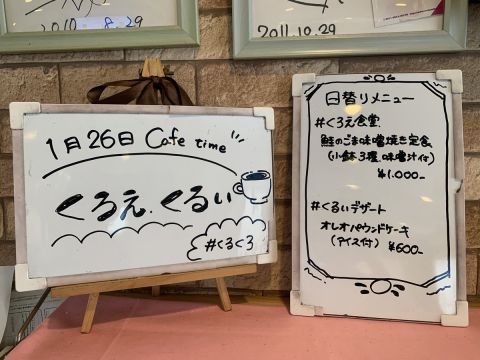 2010.8.29
2011.10.29
1月26日 Cafe time
くるえ.くるい
#くるくる
日替りメニュー
#くるえ食堂
鮭のごま味噌焼き定食
(小鉢3種、味噌汁付)
¥1.000-
#くるいデザート
オレオパウンドケーキ
(アイス付) ¥600-